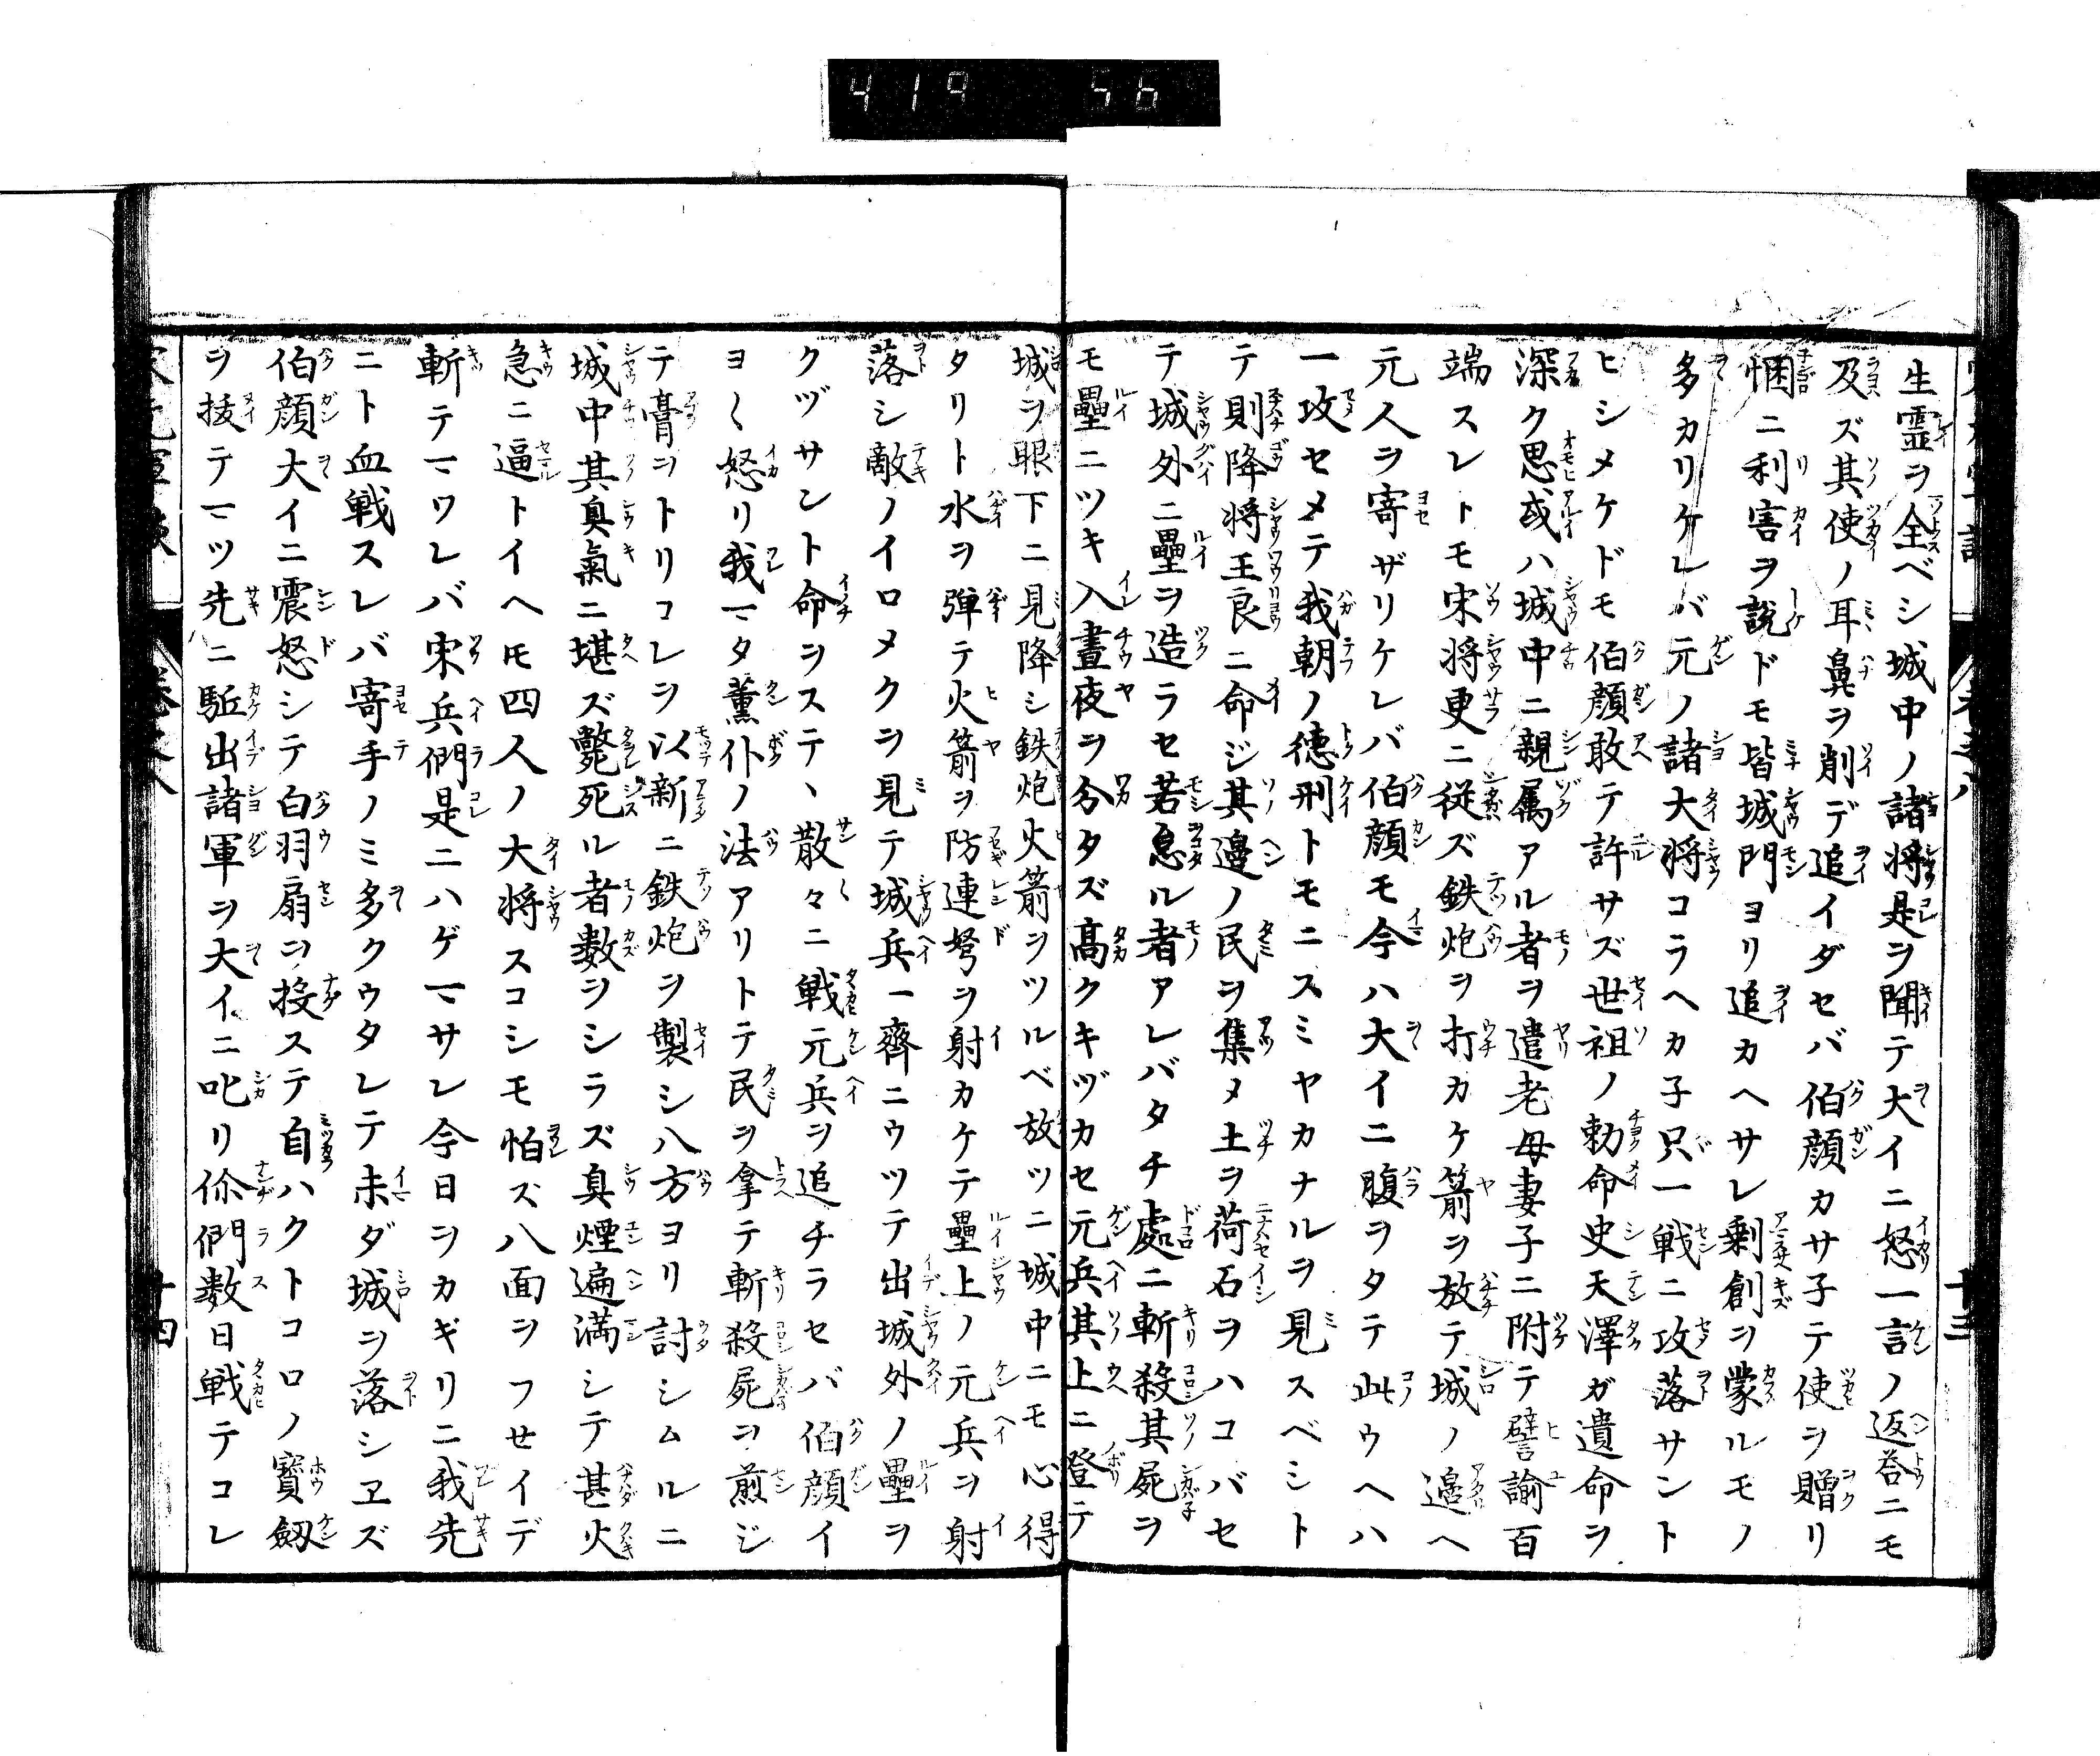 419 56
生霊ヲ全ベシ城中ノ諸将是ヲ聞テ大イニ怒一言ノ返答ニモ
及ズ其使ノ耳鼻ヲ削デ追イダセバ伯顔カサ子テ使ヲ贈リ
悃ニ利害ヲ説ドモ皆城門ヨリ追カヘサレ剰創ヲ蒙ルモノ
多カリケレバ元ノ諸大将コラヘカ子只一戦ニ攻落サント
ヒシメケドモ伯顔敢テ許サズ世祖ノ勅命史天澤ガ遺命ヲ
深ク思或ハ城中ニ親属アル者ヲ遣老母妻子ニ附テ譬諭百
端スレトモ宋将更ニ従ズ鉄炮ヲ打カケ箭ヲ放テ城ノ邉ヘ
元人ヲ寄ザリケレバ伯顔モ今ハ大イニ腹ヲタテ此ウヘハ
一攻セメテ我朝ノ徳刑トモニスミヤカナルヲ見スベシト
テ則降将王良ニ命ジ其邉ノ民ヲ集メ土ヲ荷石ヲハコバセ
テ城外ニ壘ヲ造ラセ若怠ル者アレバタチ處ニ斬殺其屍ヲ
モ壘ニツキ入晝夜ヲ分タズ高クキヅカセ元兵其上ニ登テ
城ヲ眼下ニ見降シ鉄炮火箭ヲツルベ放ツニ城中ニモ心得
タリト水ヲ弾テ火箭ヲ防連弩ヲ射カケテ壘上ノ元兵ヲ射
落シ敵ノイロメクヲ見テ城兵一齊ニウツテ出城外ノ壘ヲ
クヅサント命ヲステヽ散々ニ戦元兵ヲ追チラセバ伯顔イ
ヨ〱怒リ我マタ薫仆ノ法アリトテ民ヲ拿テ斬殺屍ヲ煎ジ
テ膏ヲトリコレヲ以新ニ鉄炮ヲ製シ八方ヨリ討シムルニ
城中其臭氣ニ堪ズ斃死ル者数ヲシラズ臭煙遍満シテ甚火
急ニ逼トイヘモ四人ノ大将スコシモ怕ズ八面ヲフセイデ
斬テマワレバ宋兵們是ニハゲマサレ今日ヲカギリニ我先
ニト血戦スレバ寄手ノミ多クウタレテ未ダ城ヲ落シヱズ
伯顔大イニ震怒シテ白羽扇ヲ投ステ自ハクトコロノ寳劔
ヲ抜テマツ先ニ駈出諸軍ヲ大イニ叱リ你們数日戦テコレ
十四